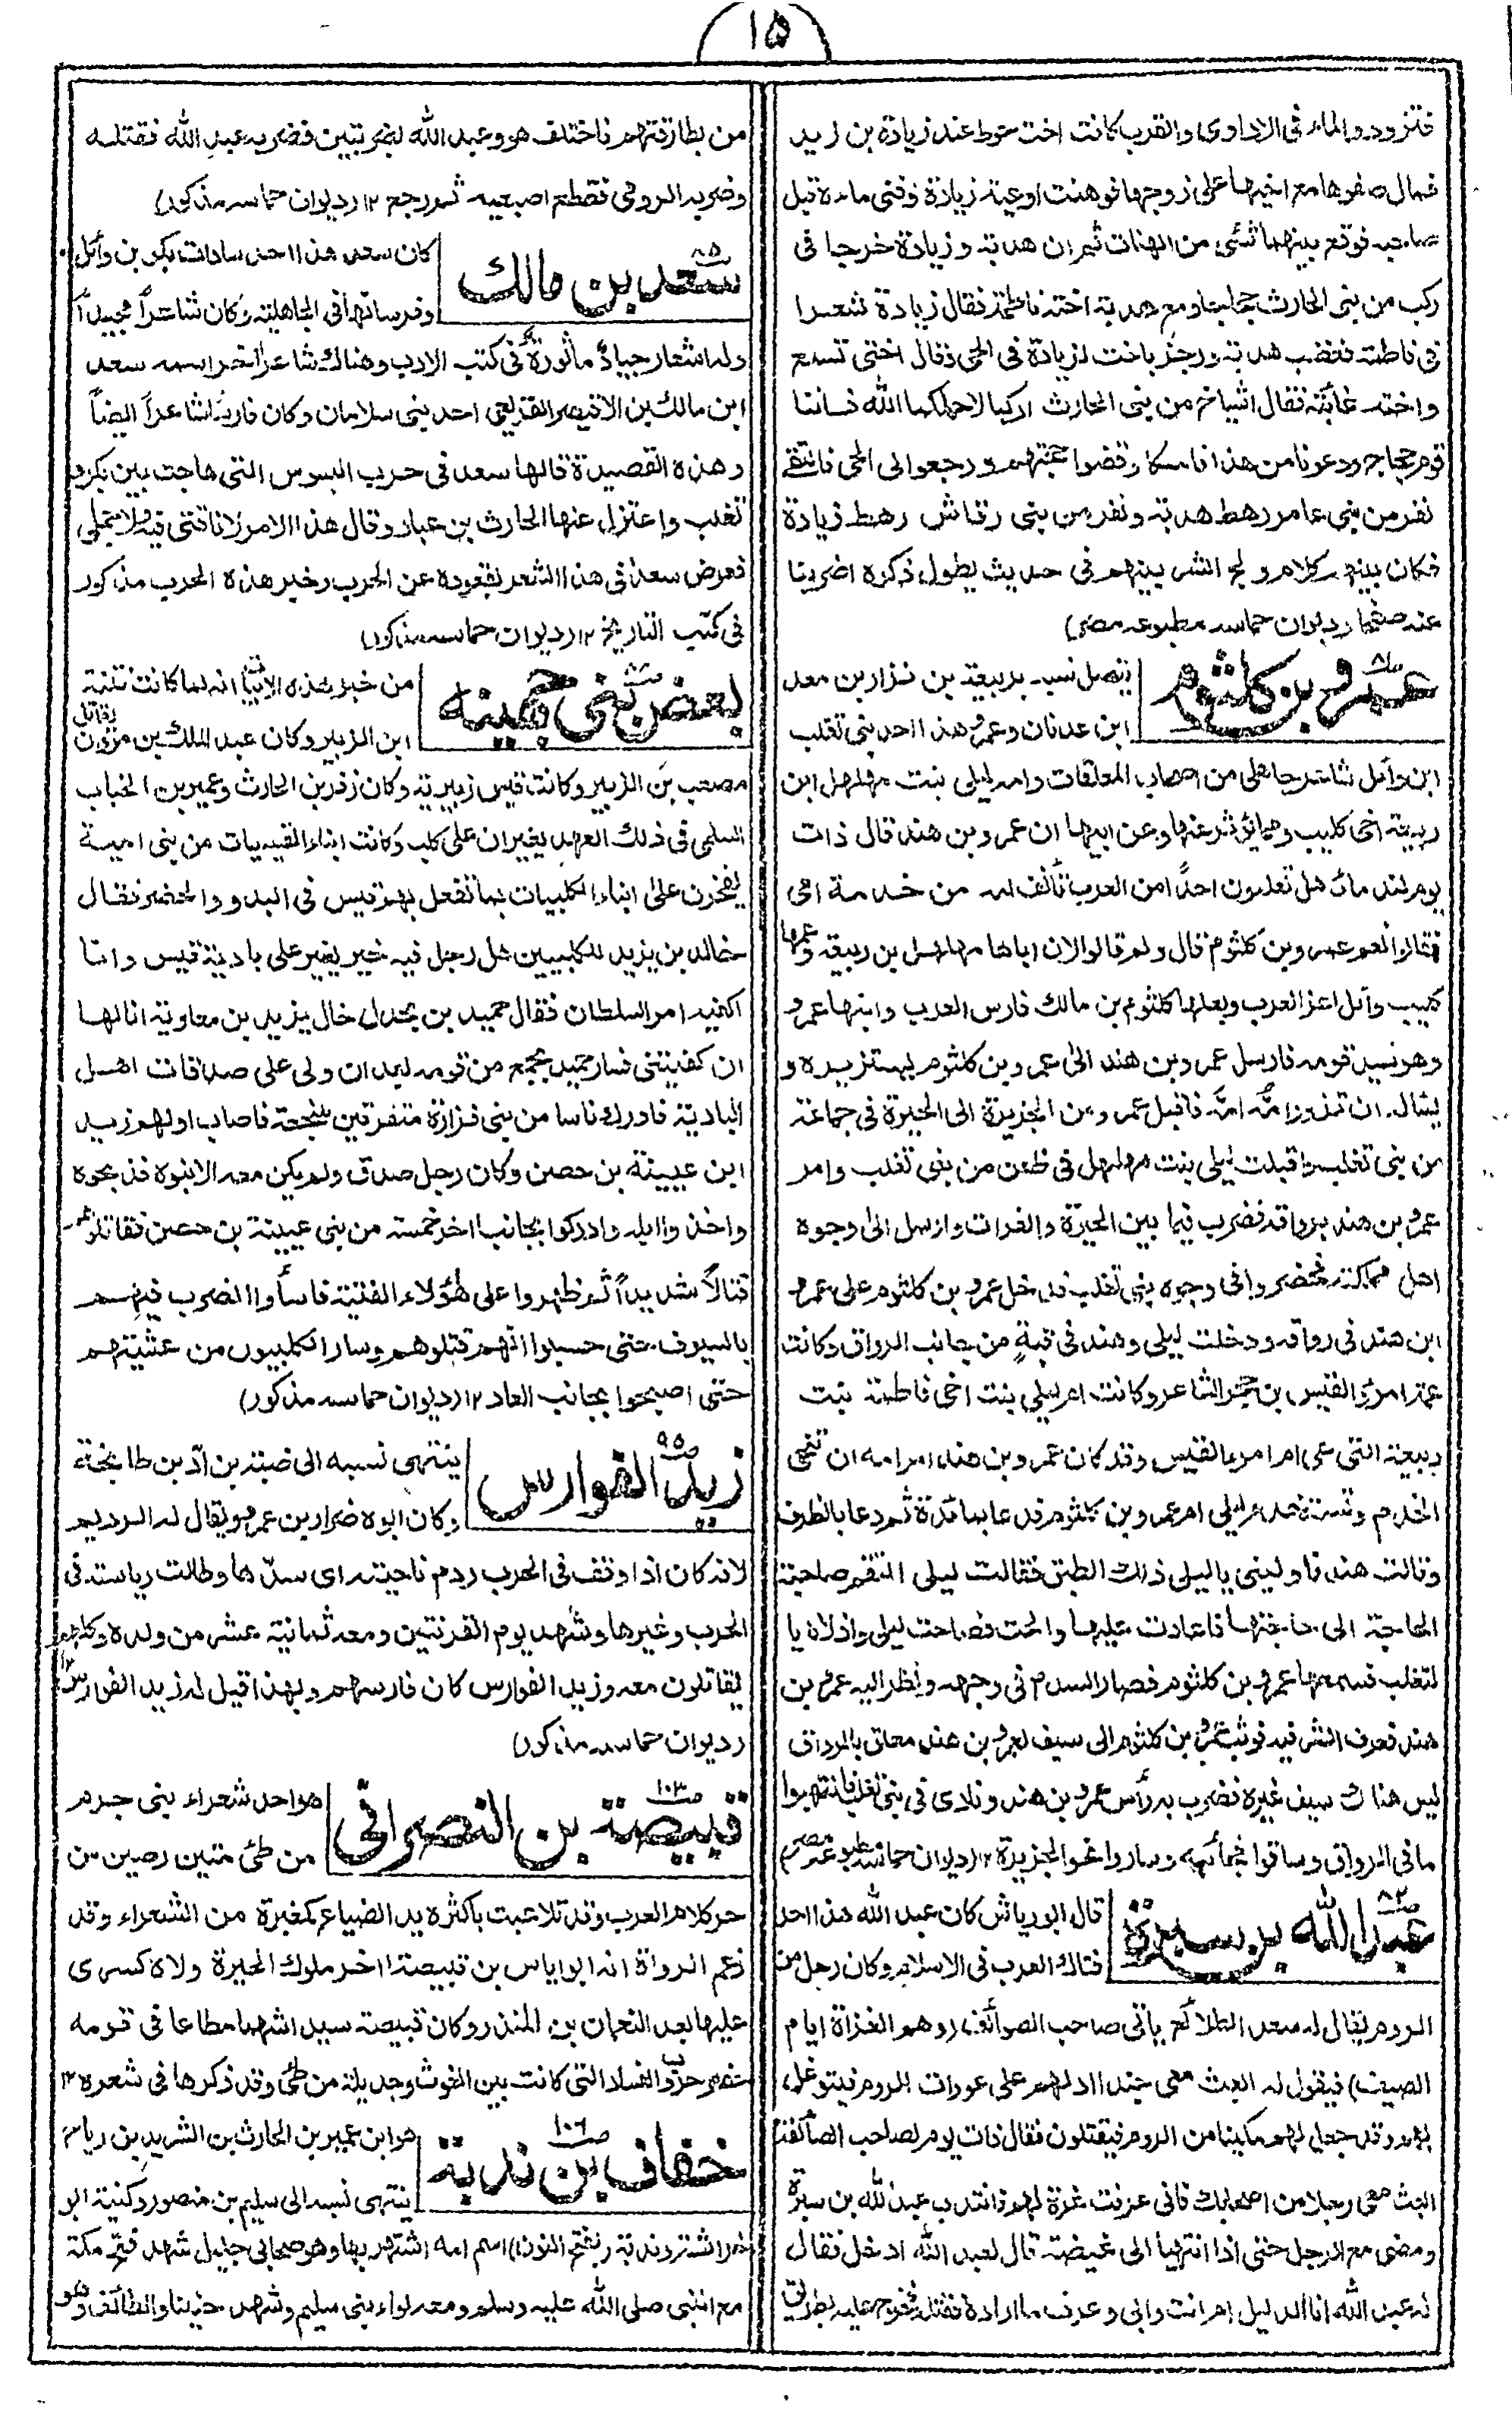 ١٥
فتزودوا الماء فى الاداوى والقرب كانت اخت حوط عند زيادة بن زيد
فمال صفوها مع اخيها على زوجها فوهنت اوعية زيادة وفنى ماءه قبل
صاحبه فوقع بينهما شئى من الهنات ثم ان هدبة وزيادة خرجا فى
ركب من بنى الحارث حجاجا ومع هدبة اخته فاطمة فقال زيادة شعرا
فى فاطمة فغضب هدبة ورجز باخت لزيادة فى الحى فقال اختى تسمع
واخته غائبة فقال اشياخ من بنى الحارث اركبا لا حملكما الله فاننا
قوم حجاج ودعونا من هذا فامسكا وقضوا حجتهم ورجعوا الى الحى فالتقى
نفر من بنى عامر رهط هدبة ونفر من بنى رقاش رهط زيادة
فكان بينهم كلام ولج الشر بينهم فى حديث يطول ذكره اضربنا
عنه صفحا (ديوان حماسه مطبوعه مصر)
عمرو بن كلثوم
صـ ٨١
يتصل نسبه بربيعة بن نزار بن معد
ابن عدنان وعمرو هذا احد بنى تغلب
ابن وائل شاعر جاهلى من اصحاب المعلقات وامه ليلى بنت مهلهل ابن
ربيعة اخى كليب وحمائوثر عنها وعن ابيها ان عمرو بن هند قال ذات
يوم لندمائه هل تعلمون احدًا من العرب تأنف امه من خدمة امى
فقالوا نعم عمرو بن كلثوم قال ولم قالوا لان اباها مهلهل بن ربيعة وعمها
كليب وائل اعز العرب وبعلها كلثوم بن مالك فارس العرب وابنها عمرو
وهو سيد قومه فارسل عمرو بن هند الى عمرو بن كلثوم يستزيره و
يسأله ان تزور امُّه امَّه فاقبل عمرو من الجزيرة الى الحيرة فى جماعة
من بنى تغلب واقبلت ليلى بنت مهلهل فى ظعن من بنى تغلب وامر
عمرو بن هند برواقه فضرب فيما بين الحيرة والفرات وارسل الى وجوه
اهل مملكته فحضروا فى وجوه بنى تغلب فدخل عمرو بن كلثوم على عمرو
ابن هند فى رواقه ودخلت ليلى وهند فى قبةٍ من جانب الرواق وكانت
عمة امرؤ القيس بن حجر الشاعر وكانت ام ليلى بنت اخى فاطمة بنت
ربيعة التى هى ام امرء القيس وقد كان عمرو بن هند امر امه ان تنحى
الخدم وتستخدم ليلى ام عمرو بن كلثوم فدعا بمائدة ثم دعا بالطرف
وقالت هند ناولينى يا ليلى ذلك الطبق فقالت ليلى التقم صاحبة
الحاجة الى حاجتها فاعادت عليها والحت فصاحت ليلى واذلاه يا
لتغلب فسمعها عمرو بن كلثوم فصار الدم فى وجهه ونظر اليه عمرو بن
هند فعرف الشر فيه فوثب عمرو بن كلثوم الى سيف لعمرو بن هند معلق بالرواق
ليس هناك سيف غيره فضرب به رأس عمرو بن هند ونادى فى بنى تغلب فانتهبوا
ما فى الرواق وساقوا نجائبه وساروا نحو الجزيرة ١٢ (ديوان حماسه مطبوعه مصر)
عبد الله بن سبرة
صـ ٨٣
قال ابو رياش كان عبد الله هذا احد
فتاك العرب فى الاسلام وكان رجل من
الروم يقال له سعد الطلائع يأتى صاحب الصوائف (وهم الغزاة ايام
الصيف) فيقول له ابعث معى جندا ادلهم على عورات الروم فيتوغل
بهم وقد جعل لهم كمينا من الروم فيقتلون فقال ذات يوم لصاحب الصائفة
ابعث معى رجلا من اصحابك فانى عرفت غرة لهم فانتدب عبد الله بن سبرة
ومضى مع الرجل حتى اذا انتهيا الى غيضة قال لعبد الله ادخل فقال
له عبد الله انا الدليل ام انت وابى وعرف ما اراده فقتله فخرج عليه بطريق
من بطارقتهم فاختلف هو وعبد الله بضربتين فضربه عبد الله فقتله
وضربه الرومى فقطع اصبعيه ثم رجع ١٢ (ديوان حماسه مذكور)
سعد بن مالك
صـ ٨٥
كان سعد هذا احد سادات بكر بن وائل
وفرسانها فى الجاهلية وكان شاعراً مجيداً
وله اشعار جيادٌ ماثورةٌ فى كتب الادب وهناك شاعر اٰخر اسمه سعد
ابن مالك بن الاقيصر القريعى احد بنى سلامان وكان فارسا شاعراً ايضاً
وهذه القصيدة قالها سعد فى حرب البسوس التى هاجت بين بكر و
تغلب واعتزل عنها الحارث بن عباد وقال هذا الامر لا ناقتى فيه ولا جملى
فعرض سعد فى هذا الشعر بقعوده عن الحرب وخبر هذه الحرب مذكور
فى كتب التاريخ ١٢ (ديوان حماسه مذكور)
بعض بنى جهينه
من خبر هذه الابيات انه لما كانت فتنة
ابن الزبير وكان عبد الملك بن مروان يقاتل
مصعب بن الزبير وكانت قيس زبيرية وكان زفر بن الحارث وعمير بن الحباب
السلمى فى ذلك العهد يغيران على كلب وكانت ابناء القيسيات من بنى امية
يفخرن على ابناء الكلبيات بما تفعل بهم قيس فى البدو والحضر فقال
خالد بن يزيد للكلبيين هل رجل فيه خير يغير على بادية قيس وانا
اكفيه امر السلطان فقال حميد بن بحدل خال يزيد بن معاوية انا لها
ان كفيتنى فسار حميد بجمع من قومه بعد ان ولى على صدقات اهل
البادية فادرك ناسا من بنى فزارة متفرقين بنجعة فاصاب اولهم زيد
ابن عيينة بن حصن وكان رجل صدق ولم يكن معه الا بنوه فذبحوه
واخذوا ابله وادركوا بجانب اٰخر خمسة من بنى عيينة بن حصن فقاتلوهم
قتالاً شديداً ثم ظهروا على هٰؤلاء الفتية فاسأوا الضرب فيهم
بالسيوف حتى حسبوا انهم قتلوهم وسار الكلبيون من عشيتهم
حتى اصبحوا بجانب العاد ١٢ (ديوان حماسه مذكور)
زيد الفوارس
صـ ٩٥
ينتهى نسبه الى ضبة بن ادّ بن طابخة
وكان ابوه ضرار بن عمرو يقال له الرديم
لانه كان اذا وقف فى الحرب ردم ناحيته اى سدّها وطالت رياسته فى
الحرب وغيرها وشهد يوم القرنتين ومعه ثمانية عشر من ولده وكلهم
يقاتلون معه وزيد الفوارس كان فارسهم ولهذا قيل له زيد الفوارس ١٢
(ديوان حماسه مذكور)
قبيصة بن النصرانى
صـ ١٠٣
هو احد شعراء بنى جرم
من طئ متين رصين من
حر كلام العرب وقد تلاعبت باكثره يد الضياع كغيره من الشعراء وقد
زعم الرواة انه ابو اياس بن قبيصة اٰخر ملوك الحيرة ولاه كسرى
عليها بعد النعمان بن المنذر وكان قبيصة سيدا شهما مطاعا فى قومه
حضر حرب الفساد التى كانت بين الغوث وجديلة من طئ وقد ذكرها فى شعره ١٢
خفاف بن ندبة
صـ ١٠٦
هو ابن عمير بن الحارث بن الشريد بن رياح
ينتهى نسبه الى سليم بن منصور وكنيته ابو
خراشة وندبة (بفتح النون) اسم امه اشتهر بها وهو صحابى جليل شهد فتح مكة
مع النبى صلى الله عليه وسلم ومعه لواء بنى سليم وشهد حنينا والطائف وهو